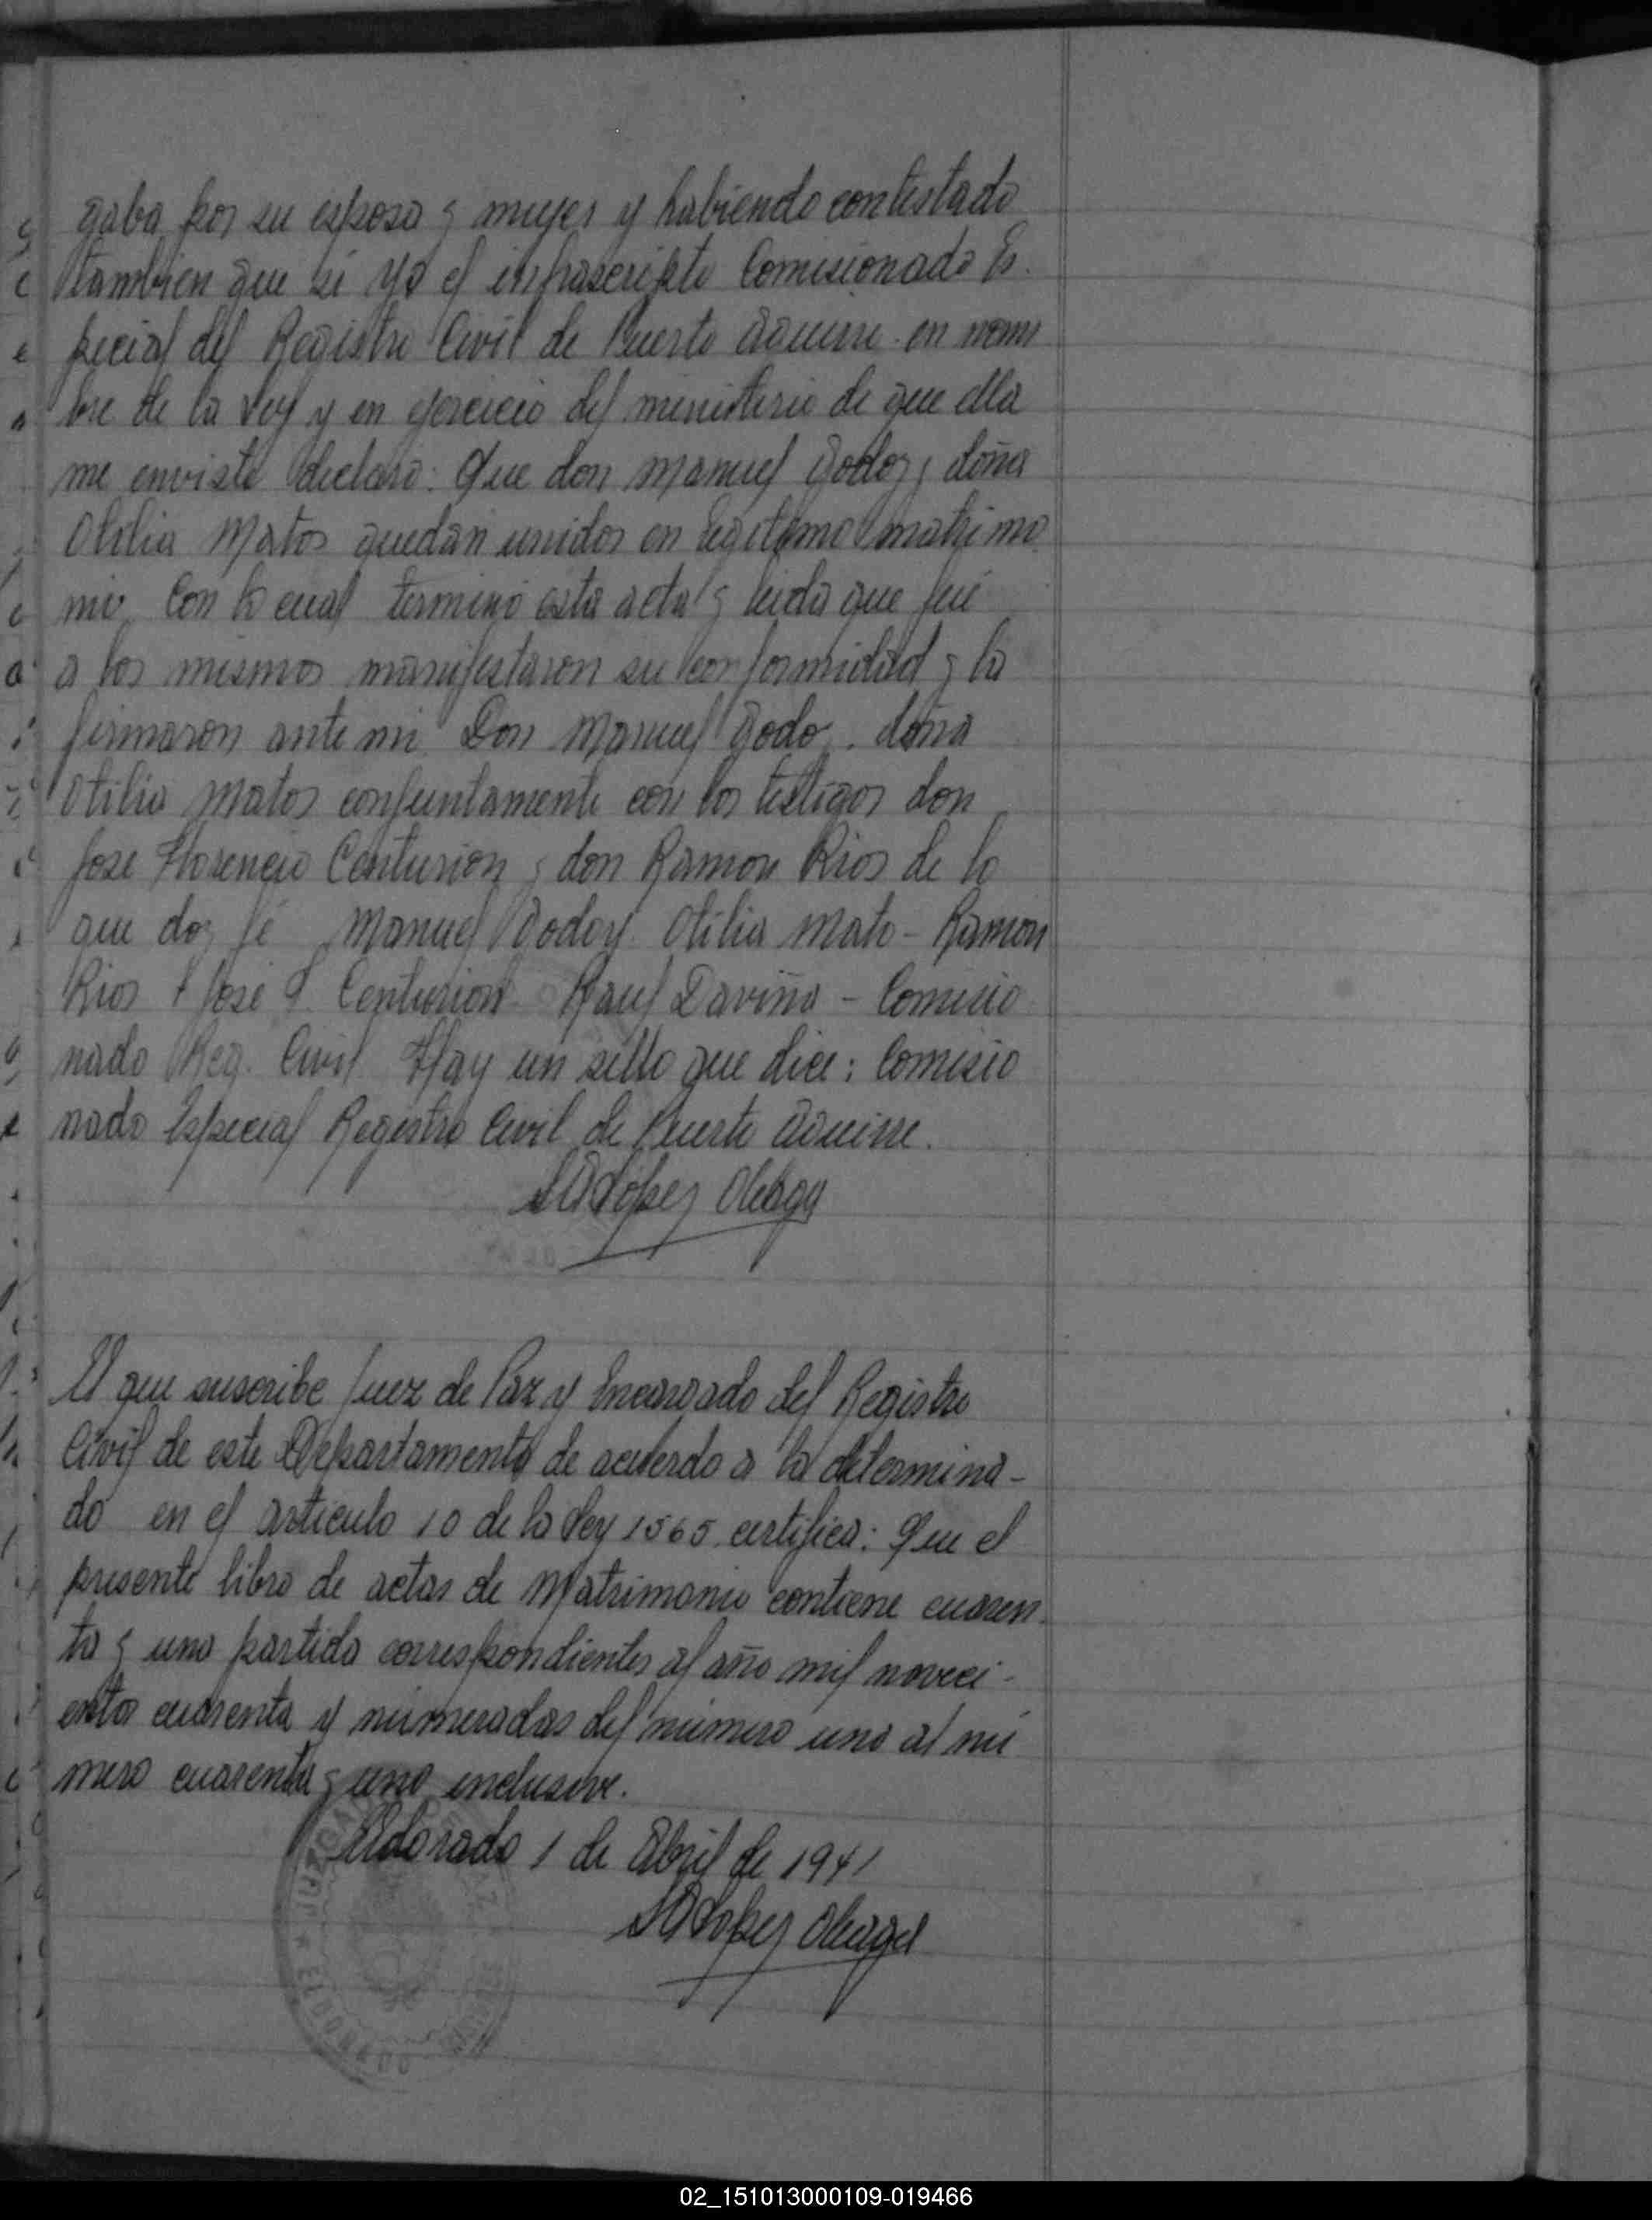 gaba por su esposa y mujer y habiendo contestado
tambien que si yo el infrascripto Comisionado Es-
pecial del Registro Civil de Puerto Aguirre en nom
bre de la Ley y en ejercicio del ministerio de que ella
me enviste declaro: Que don Manuel Godoy y doña
Otilia Matos quedan unidos en legitimo matrimo
nio. Con lo cual termino esta acta y leida que fué
a los mismos manifestaron su conformidad y la
firmaron ante mi Don Manuel Godo . doña
Otilia Matos conjuntamente con los testigos don
Jose Florencio Centurion y don Ramon Rios de lo
que doy fé Manuel Godoy Otilia Mato - Ramon
Rios José F. Centurion Raul Daviña - Comisio
nado Reg. Civil Hay un sello que dice: Comisio
nado Especial Registro Civil de Puerto Aguirre.
López Oleaga
El que suscribe Juez de Paz y Encargado del Registro
Civil de este Departamento de acuerdo a lo determina-
do en el articulo 10 de la Ley 1565 certifica: Que el
presente libro de actas de Matrimonio contiene cuaren
ta y una partida correspondientes al año mil noveci-
entos cuarenta y numeradas del número uno al nú
mero cuarenta y uno inclusive.
Eldorado 1 de Abril de 1941
López Oleaga
JUZGADO DE PAZ
★ ELDORADO
02_151013000109-019466